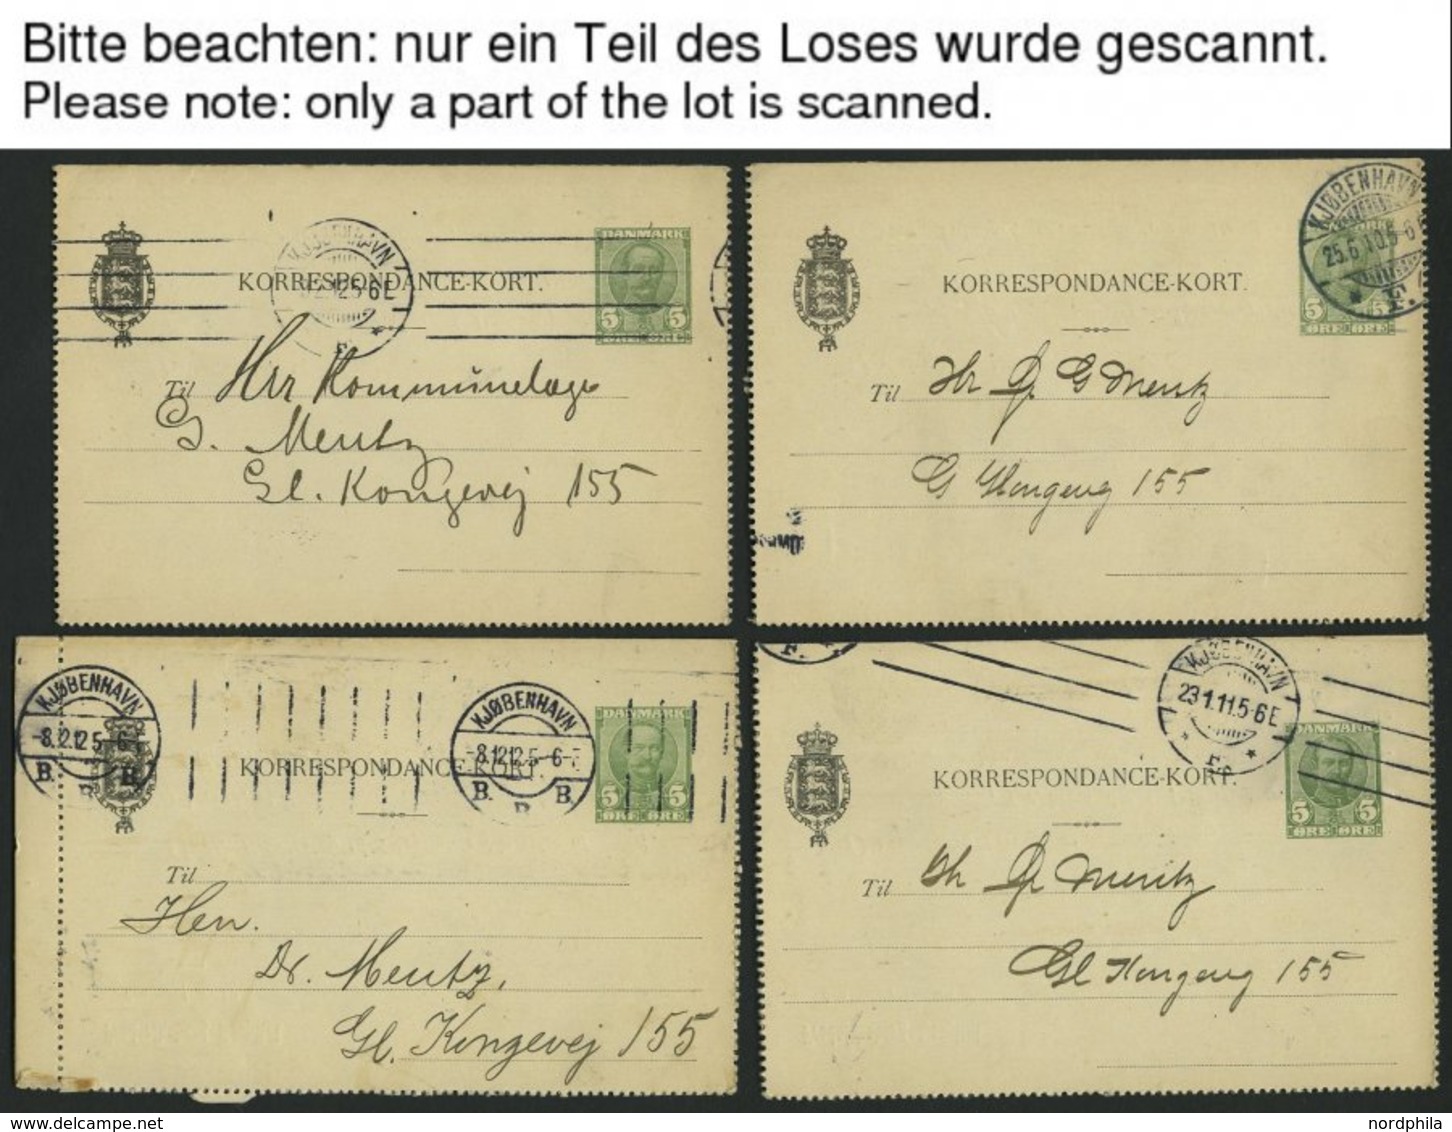 Bitte beachten: nur ein Teil des Loses wurde gescannt.
Please note: only a part of the lot is scanned.
KJØBENHAVN
12 5-6 E
F.
DANMARK
KORRESPONDANCE-KORT.
5 5
ØRE ØRE
Til Hrr Kommunelæge
G. Mentz
Gl. Kongevej 155
KJØBENHAVN
25.6.10.5-6 E
F.
KORRESPONDANCE-KORT.
5 5
ØRE ØRE
Til Hr Dr G Mentz
G Kongevej 155
KJØBENHAVN
-8.12.12 5-6-
B. B. B.
KJØBENHAVN
-8.12.12 5-6-
B. B. B.
DANMARK
KORRESPONDANCE-KORT.
5 5
ØRE ØRE
Til
Herr.
Dr. Mentz,
Gl. Kongevej 155
F.
KJØBENHAVN
23.1.11.5-6 E
F.
DANMARK
KORRESPONDANCE-KORT.
5 5
ØRE ØRE
Til Hr Dr Mentz
Gl Kongevej 155
nordphila